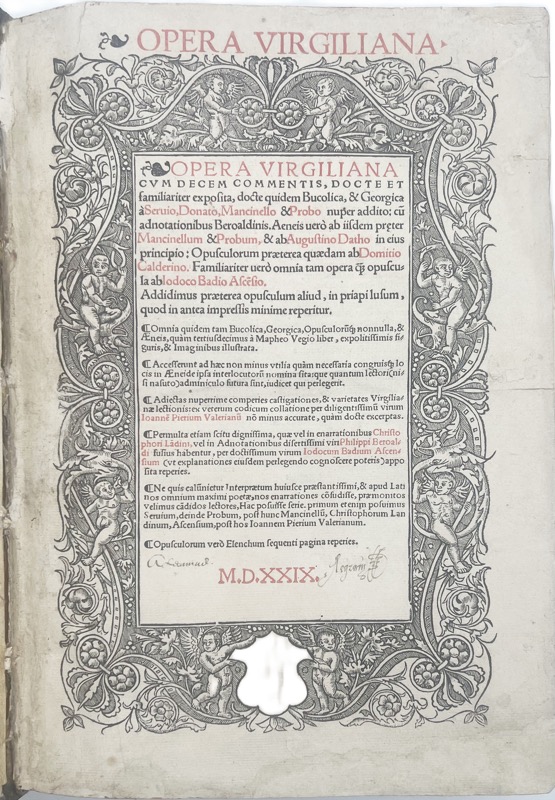 OPERA VIRGILIANA
OPERA VIRGILIANA
CVM DECEM COMMENTIS, DOCTE ET
familiariter exposita, docte quidem Bucolica, & Georgica
à Seruio, Donato, Mancinello & Probo nuper addito: cū
adnotationibus Beroaldinis. Aeneis uerò ab iisdem præter
Mancinellum & Probum, & ab Augustino Datho in eius
principio; Opusculorum præterea quædam ab Domitio
Calderino. Familiariter uerò omnia tam opera q̄ opuscu-
la ab Iodoco Badio Ascēsio.
Addidimus præterea opusculum aliud, in priapi lusum,
quod in antea impressis minime reperitur.
¶ Omnia quidem tam Bucolica, Georgica, Opusculorūq; nonnulla, &
Æneis, quàm tertiusdecimus à Mapheo Vegio liber, expolitissimis fi-
guris, & Imaginibus illustrata.
¶ Accesserunt ad hæc non minus vtilia quàm necessaria congruis q; lo
cis in Æneide ipsa interlocutorū nomina sita: que quantum lectori (ni-
si nasuto) adminiculo futura sint, iudicet qui perlegerit.
¶ Adiectas nuperrime comperies castigationes, & varietates Virgilia-
næ lectionis: ex veterum codicum collatione per diligentissimū virum
Ioannē Pierium Valerianū nō minus accurate, quàm docte excerptas.
¶ Permulta etiam scitu dignissima, quæ vel in enarrationibus Christo
phori Lādini, vel in Adnotationibus disertissimi viri Philippi Beroal-
di fusius habentur, per doctissimum virum Iodocum Badium Ascen-
sium (vt explanationes eiusdem perlegendo cognoscere poteris) appo
sita reperies.
¶ Ne quis calūnietur Interpretum huiusce præstantissimi, & apud Lati
nos omnium maximi poetæ, nos enarrationes cōfudisse, præmonitos
velimus cādidos lectores, Hac posuisse serie. primum etenim posuimus
Seruium, deinde Probum, post hunc Mancinellū, Christophorum Lan
dinum, Ascensium, post hos Ioannem Pierium Valerianum.
¶ Opusculorum verò Elenchum sequenti pagina reperies.
M.D.XXIX.